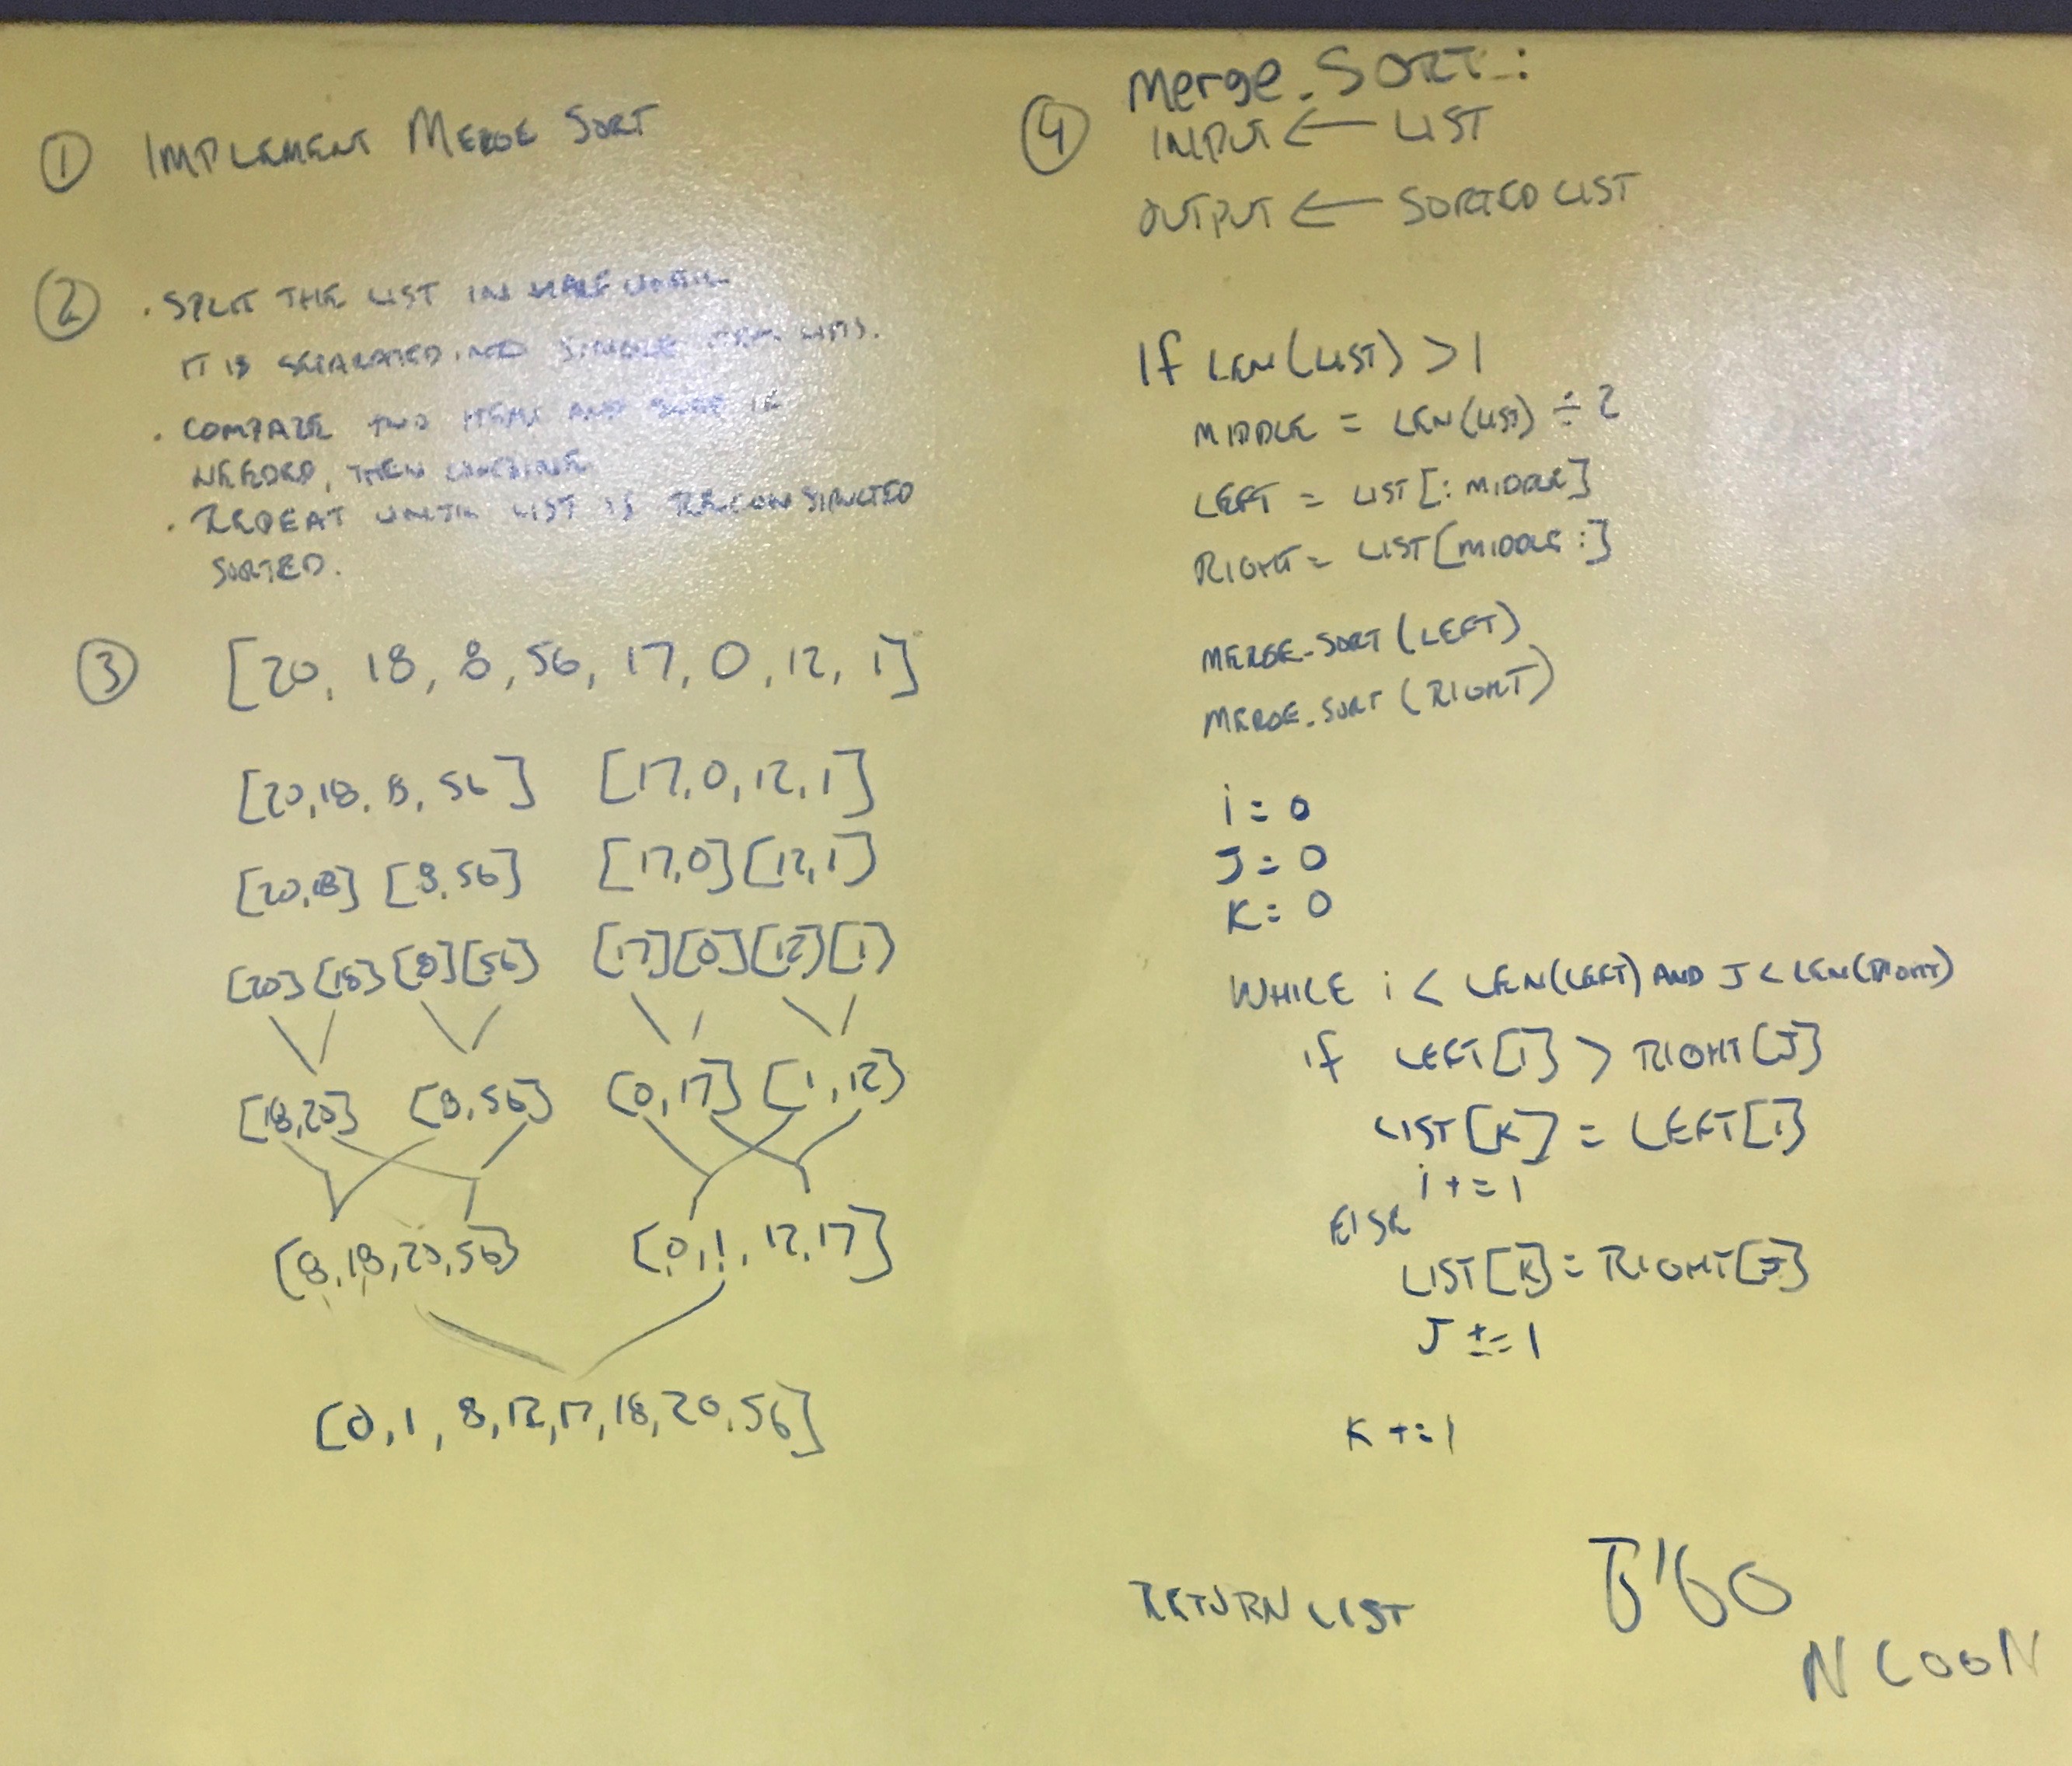 ① IMPLEMENT MERGE SORT
② . SPLIT THE LIST IN HALF UNTIL
IT IS SEPARATED INTO SINGLE ITEM LISTS.
. COMPARE TWO ITEMS AND SORT IF
NEEDED, THEN COMBINE
. REPEAT UNTIL LIST IS RECONSTRUCTED
SORTED.
③ [20, 18, 8, 56, 17, 0, 12, 1]
[20,18,8,56] [17,0,12,1]
[20,18] [8,56] [17,0] [12,1]
[20] [18] [8] [56] [17] [0] [12] [1]
[18,20] [8,56] [0,17] [1,12]
[8,18,20,56] [0,1,12,17]
[0,1,8,12,17,18,20,56]
④ Merge_SORT:
INPUT ← LIST
OUTPUT ← SORTED LIST
If LEN(LIST) > 1
MIDDLE = LEN(LIST) ÷ 2
LEFT = LIST[:MIDDLE]
RIGHT = LIST[MIDDLE:]
MERGE_SORT(LEFT)
MERGE_SORT(RIGHT)
i = 0
J = 0
K = 0
WHILE i < LEN(LEFT) AND J < LEN(RIGHT)
if LEFT[i] > RIGHT[J]
LIST[K] = LEFT[i]
i += 1
ELSE
LIST[K] = RIGHT[J]
J += 1
K += 1
RETURN LIST
N COON